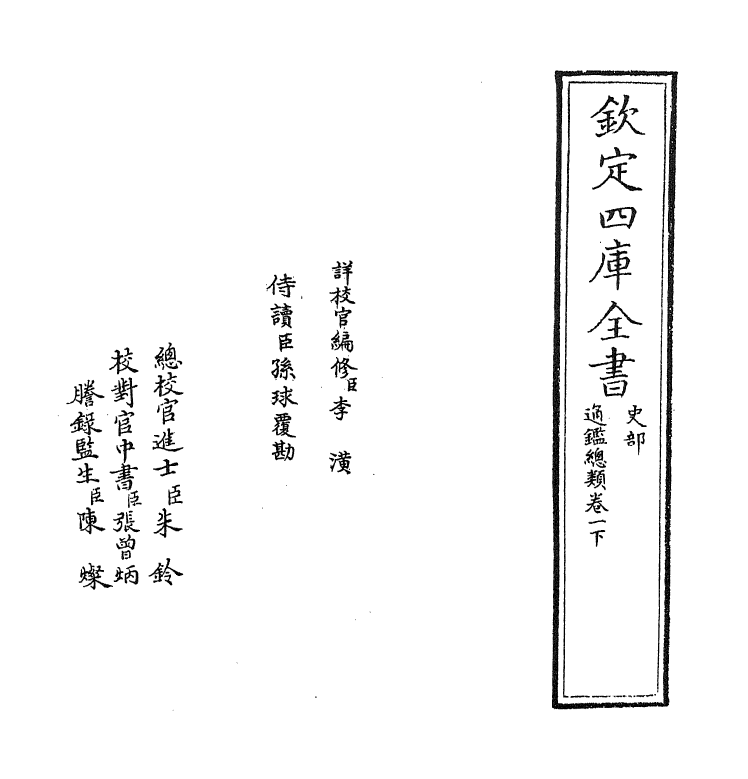 欽定四庫全書
史部
通鑑總類卷一下
詳校官編修臣李潢
侍讀臣孫球覆勘
總校官進士臣朱鈐
校對官中書臣張曾炳
謄錄監生臣陳燦